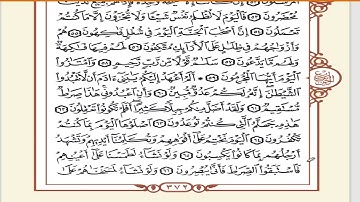 مُحْضَرُونَ فَالْيَوْمَ لَا تُظْلَمُ نَفْسٌ شَيْئًا وَلَا تُجْزَوْنَ إِلَّا مَا كُنتُمْ
تَعْمَلُونَ إِنَّ أَصْحَٰبَ الْجَنَّةِ الْيَوْمَ فِي شُغُلٍ فَٰكِهُونَ هُمْ
وَأَزْوَٰجُهُمْ فِي ظِلَٰلٍ عَلَى الْأَرَائِكِ مُتَّكِئُونَ لَهُمْ فِيهَا فَٰكِهَةٌ
وَلَهُم مَّا يَدَّعُونَ سَلَٰمٌ قَوْلًا مِّن رَّبٍّ رَّحِيمٍ وَامْتَٰزُوا
الْيَوْمَ أَيُّهَا الْمُجْرِمُونَ أَلَمْ أَعْهَدْ إِلَيْكُمْ يَٰبَنِي آدَمَ أَن لَّا تَعْبُدُوا
الشَّيْطَٰنَ إِنَّهُ لَكُمْ عَدُوٌّ مُّبِينٌ وَأَنِ اعْبُدُونِي هَٰذَا صِرَٰطٌ
مُّسْتَقِيمٌ وَلَقَدْ أَضَلَّ مِنكُمْ جِبِلًّا كَثِيرًا أَفَلَمْ تَكُونُوا تَعْقِلُونَ
هَٰذِهِ جَهَنَّمُ الَّتِي كُنتُمْ تُوعَدُونَ اصْلَوْهَا الْيَوْمَ بِمَا كُنتُمْ
تَكْفُرُونَ الْيَوْمَ نَخْتِمُ عَلَىٰ أَفْوَٰهِهِمْ وَتُكَلِّمُنَا أَيْدِيهِمْ وَتَشْهَدُ
أَرْجُلُهُم بِمَا كَانُوا يَكْسِبُونَ وَلَوْ نَشَاءُ لَطَمَسْنَا عَلَىٰ أَعْيُنِهِمْ
فَاسْتَبَقُوا الصِّرَٰطَ فَأَنَّىٰ يُبْصِرُونَ وَلَوْ نَشَاءُ لَمَسَخْنَٰهُمْ عَلَىٰ
٣٧٢